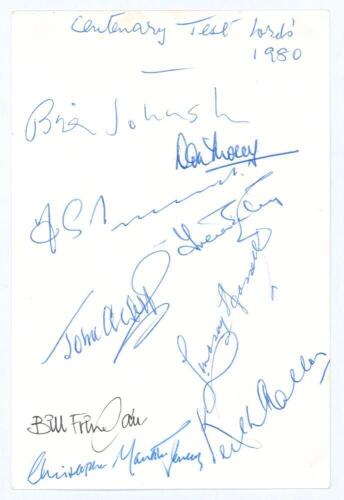 Centenary Test Lord's
1980
Brian Johnston
Don Mosey
Trevor Bailey
John Arlott
Lindsay Hassett
Bill Frindall
Keith Miller
Christopher Martin-Jenkins